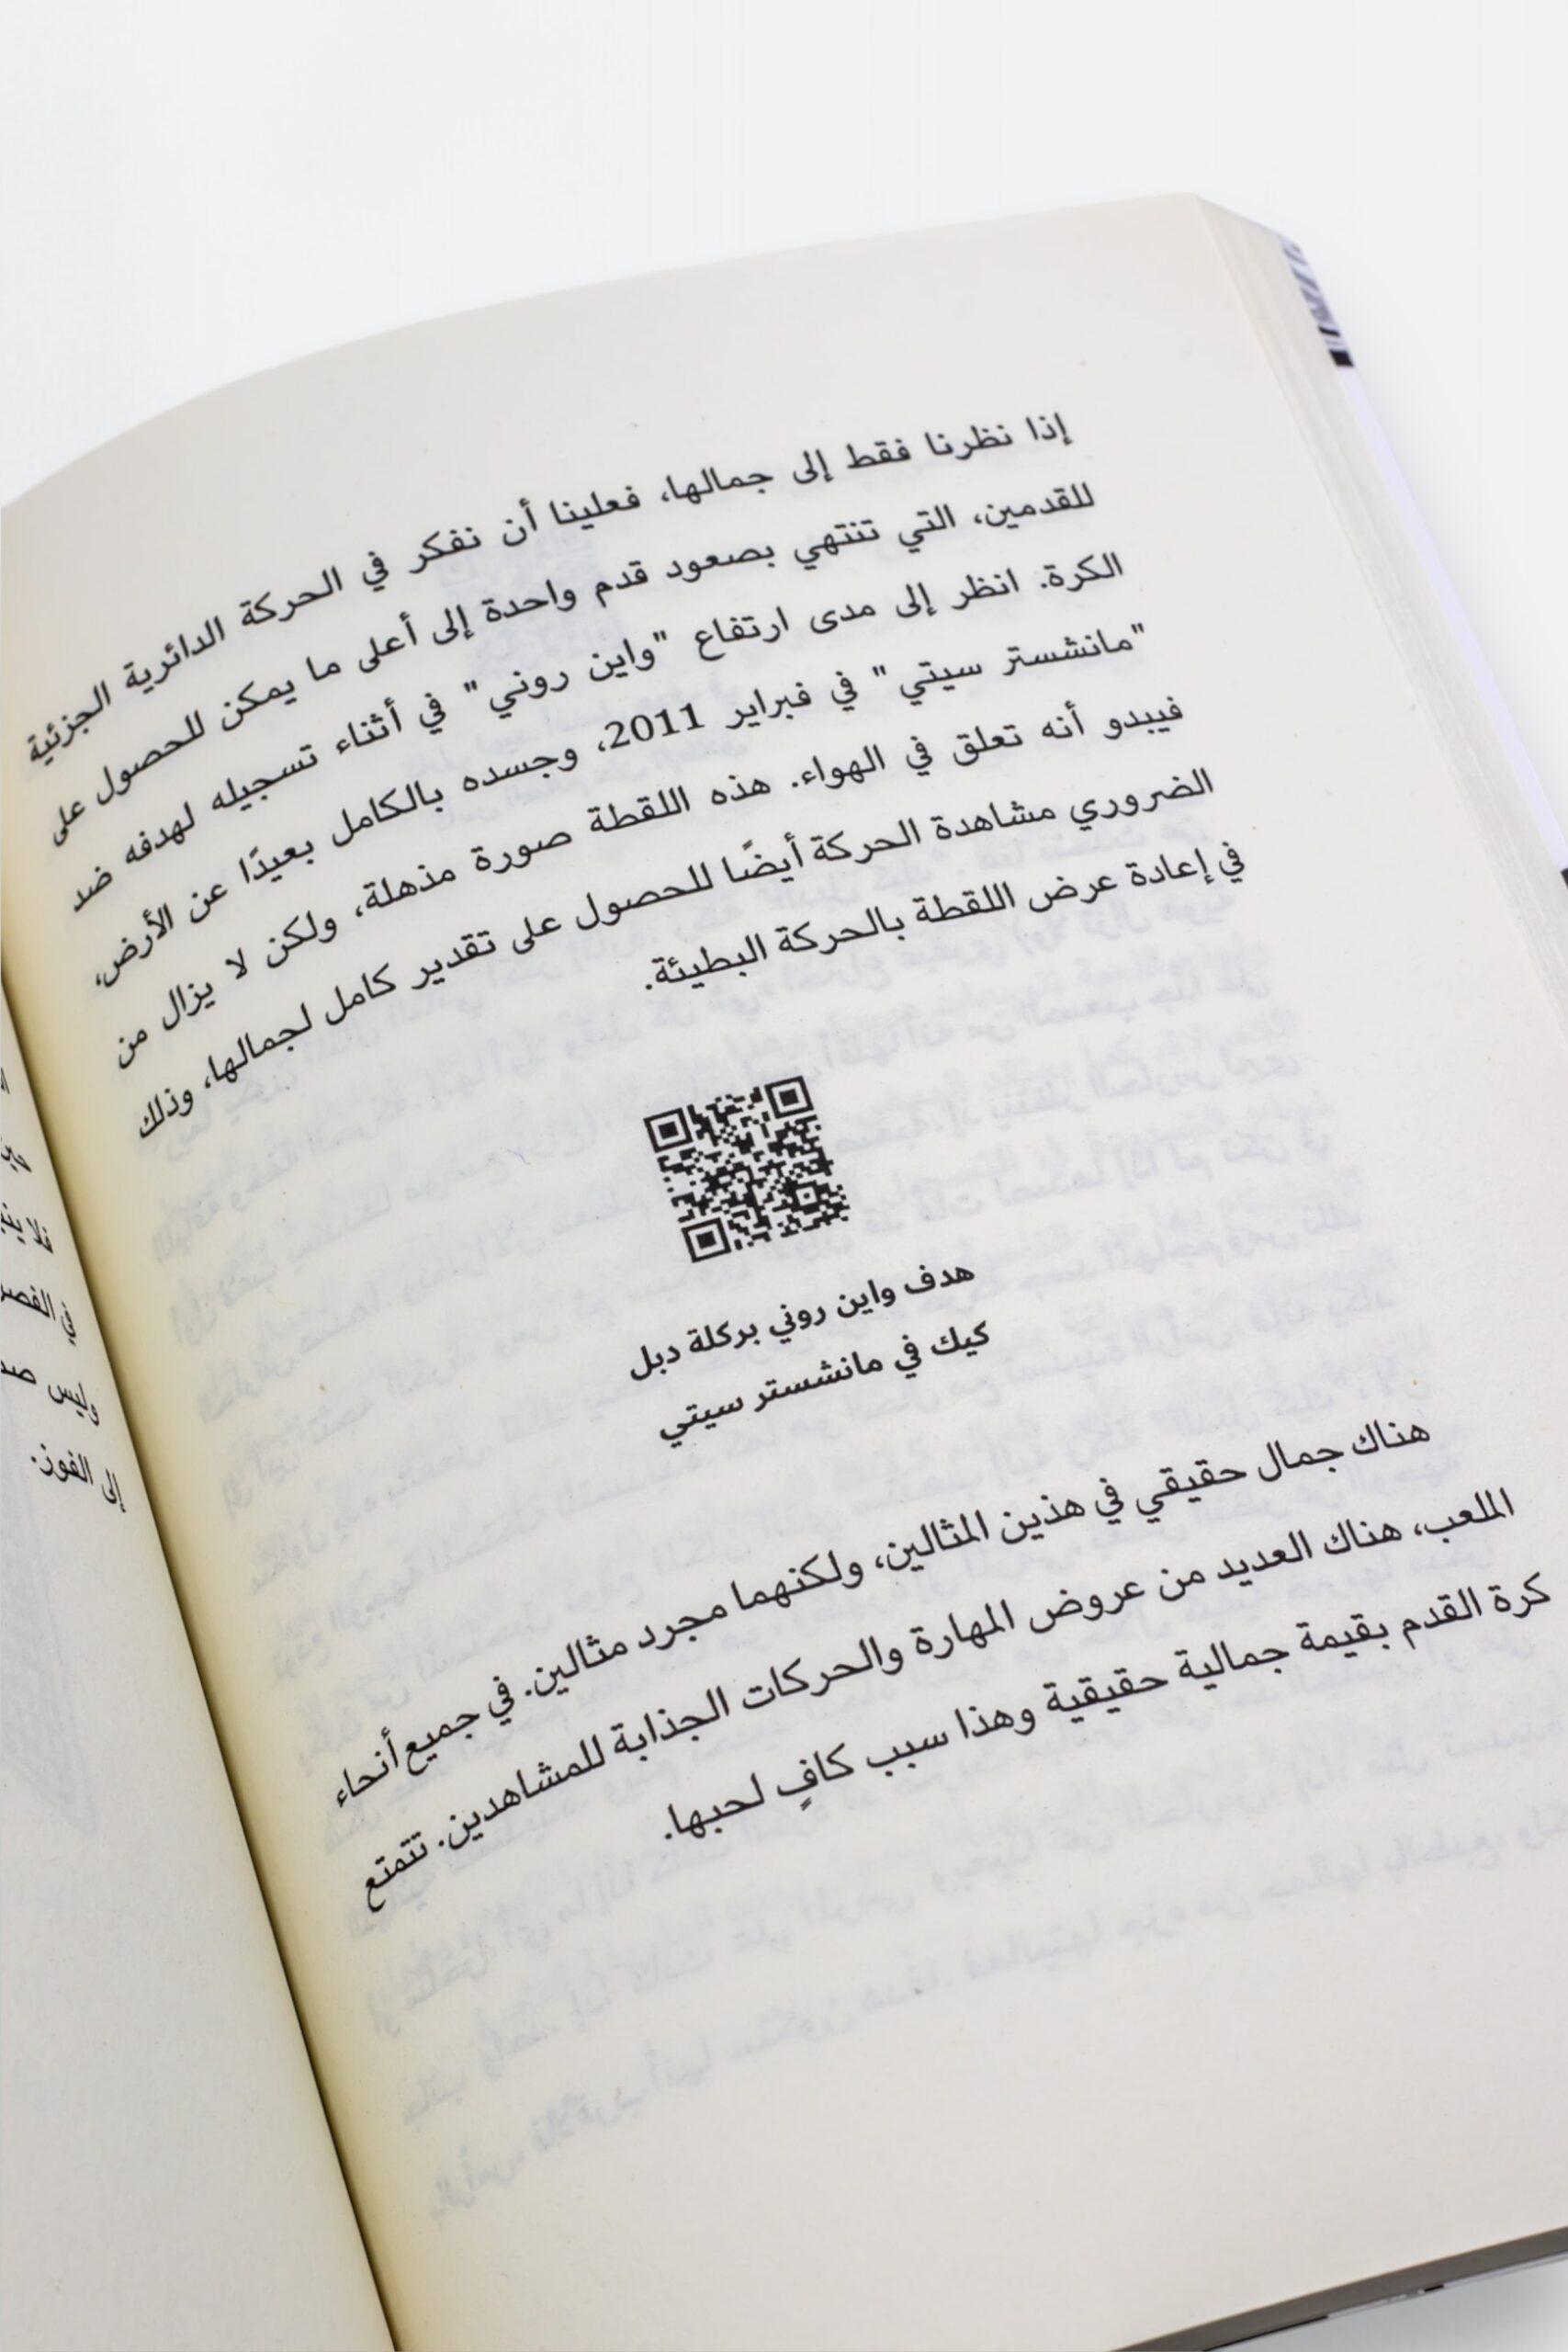 إذا نظرنا فقط إلى جمالها، فعلينا أن نفكر في الحركة الدائرية الجزئية
للقدمين، التي تنتهي بصعود قدم واحدة إلى أعلى ما يمكن للحصول على
الكرة. انظر إلى مدى ارتفاع "واين روني" في أثناء تسجيله لهدفه ضد
"مانشستر سيتي" في فبراير 2011، وجسده بالكامل بعيدًا عن الأرض،
فيبدو أنه تعلق في الهواء. هذه اللقطة صورة مذهلة، ولكن لا يزال من
الضروري مشاهدة الحركة أيضًا للحصول على تقدير كامل لجمالها، وذلك
في إعادة عرض اللقطة بالحركة البطيئة.
هدف واين روني بركلة دبل
كيك في مانشستر سيتي
هناك جمال حقيقي في هذين المثالين، ولكنهما مجرد مثالين. في جميع أنحاء
الملعب، هناك العديد من عروض المهارة والحركات الجذابة للمشاهدين. تتمتع
كرة القدم بقيمة جمالية حقيقية وهذا سبب كافٍ لحبها.
وليس
إلى الفوز.